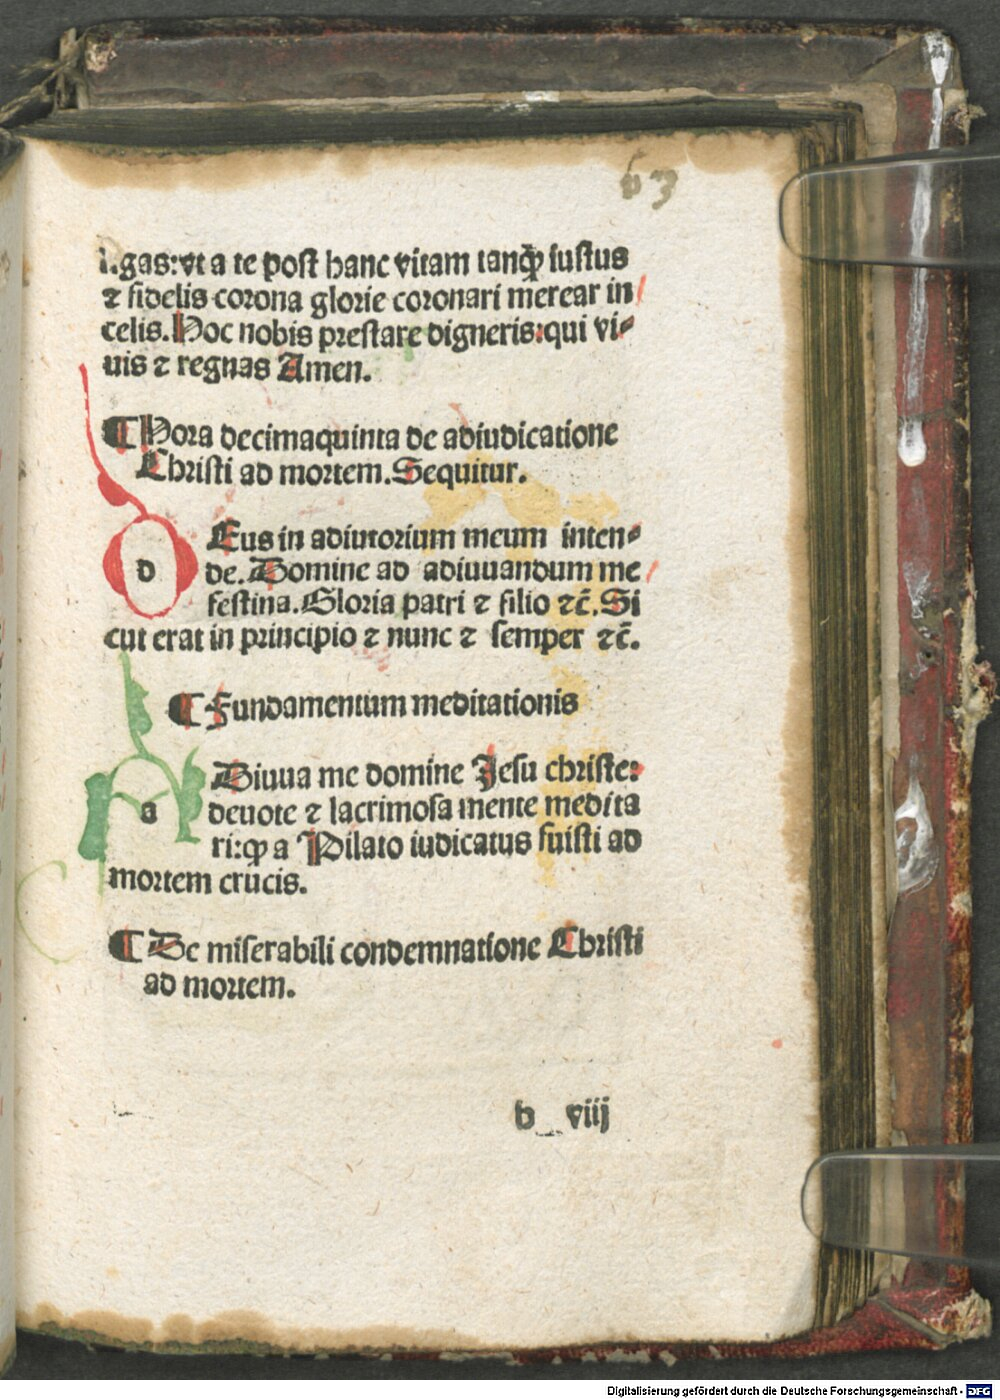 63
gas: vt a te post hanc vitam tanq̄ iustus
⁊ fidelis corona glorie coronari merear in
celis. Hoc nobis prestare digneris: qui vi⸗
uis ⁊ regnas Amen.
¶ Hora decimaquinta de adiudicatione
Christi ad mortem. Sequitur.
d Eus in adiutorium meum inten⸗
de. Domine ad adiuuandum me
festina. Gloria patri ⁊ filio ⁊c̄. Si
cut erat in principio ⁊ nunc ⁊ semper ⁊c̄.
¶ Fundamentum meditationis
a Diuua me domine Jesu christe:
deuote ⁊ lacrimosa mente medita
ri: ꝙ a Pilato iudicatus fuisti ad
mortem crucis.
¶ De miserabili condemnatione Christi
ad mortem.
h viij
Digitalisierung gefördert durch die Deutsche Forschungsgemeinschaft - DFG